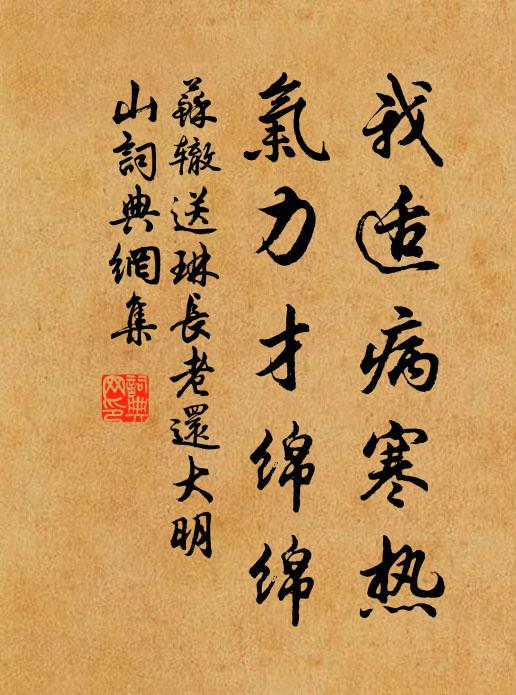 我适病寒热
氣力才绵绵
蘇辙送琳長老還大明
山詞典網集
詞典
网印